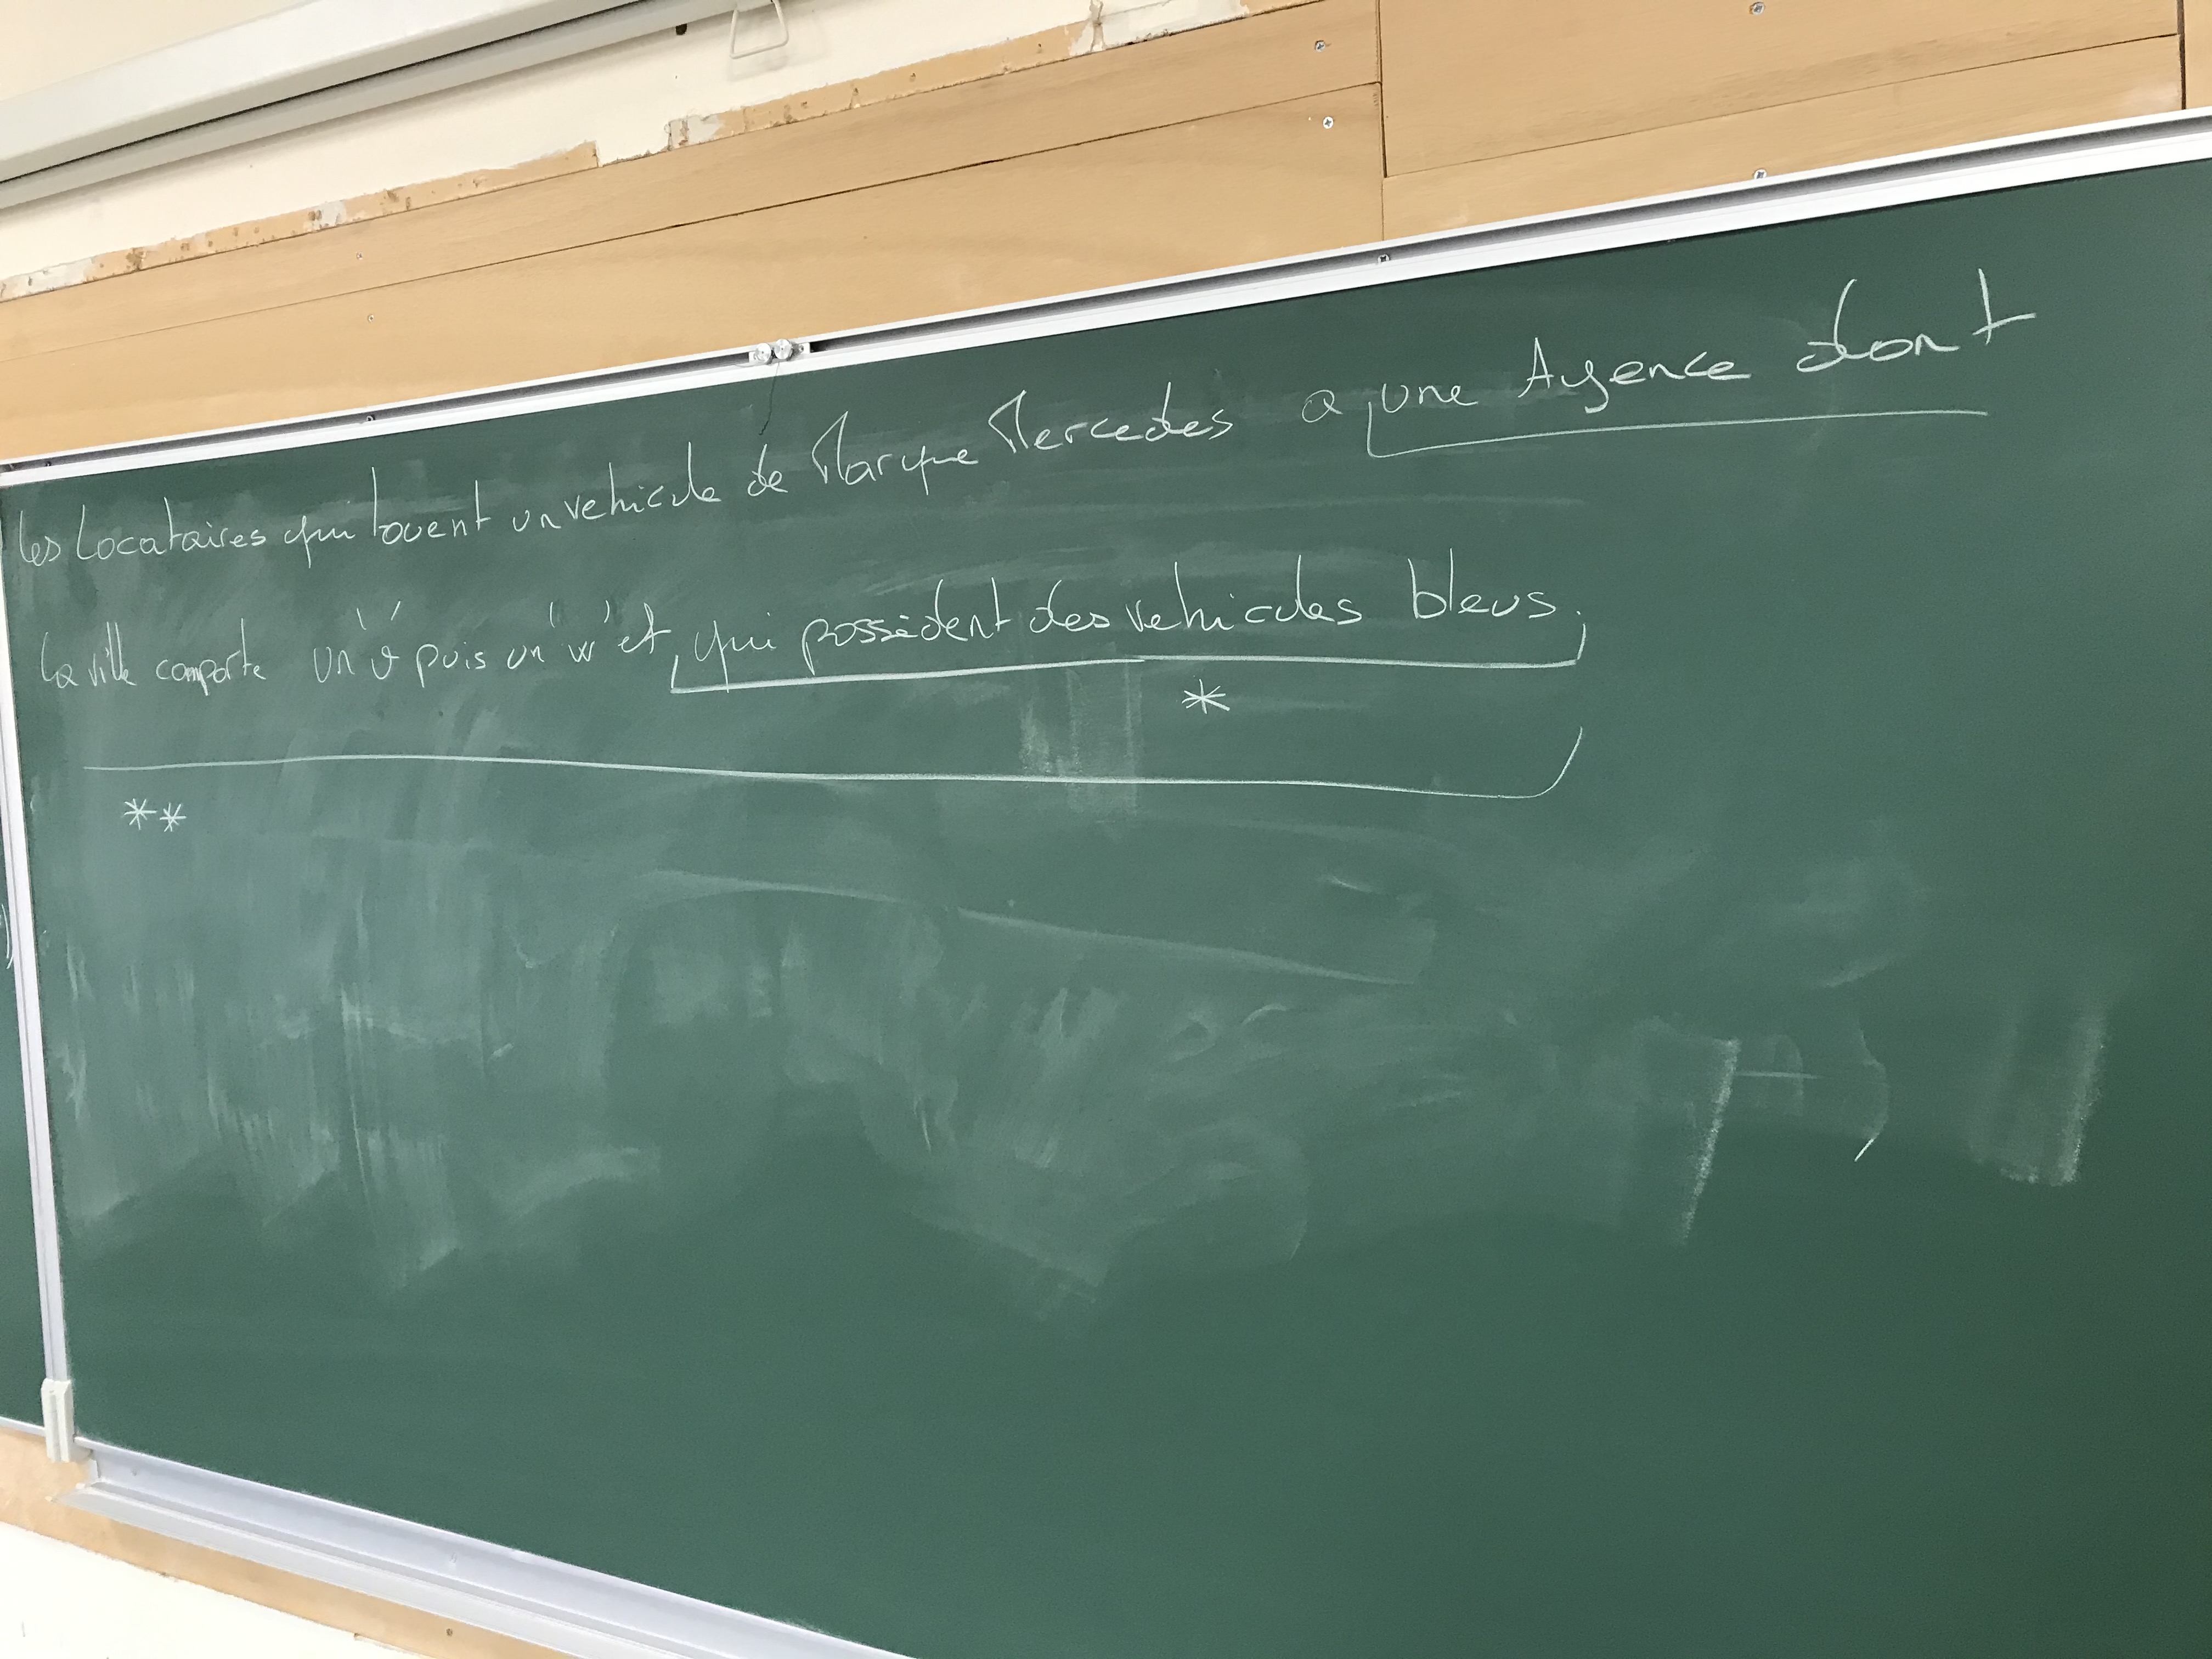 les Locataires qui louent un vehicule de Marque Mercedes a une Agence dont
la ville comporte un 'v' puis un "w" et qui possèdent des vehicules bleus.
*
**